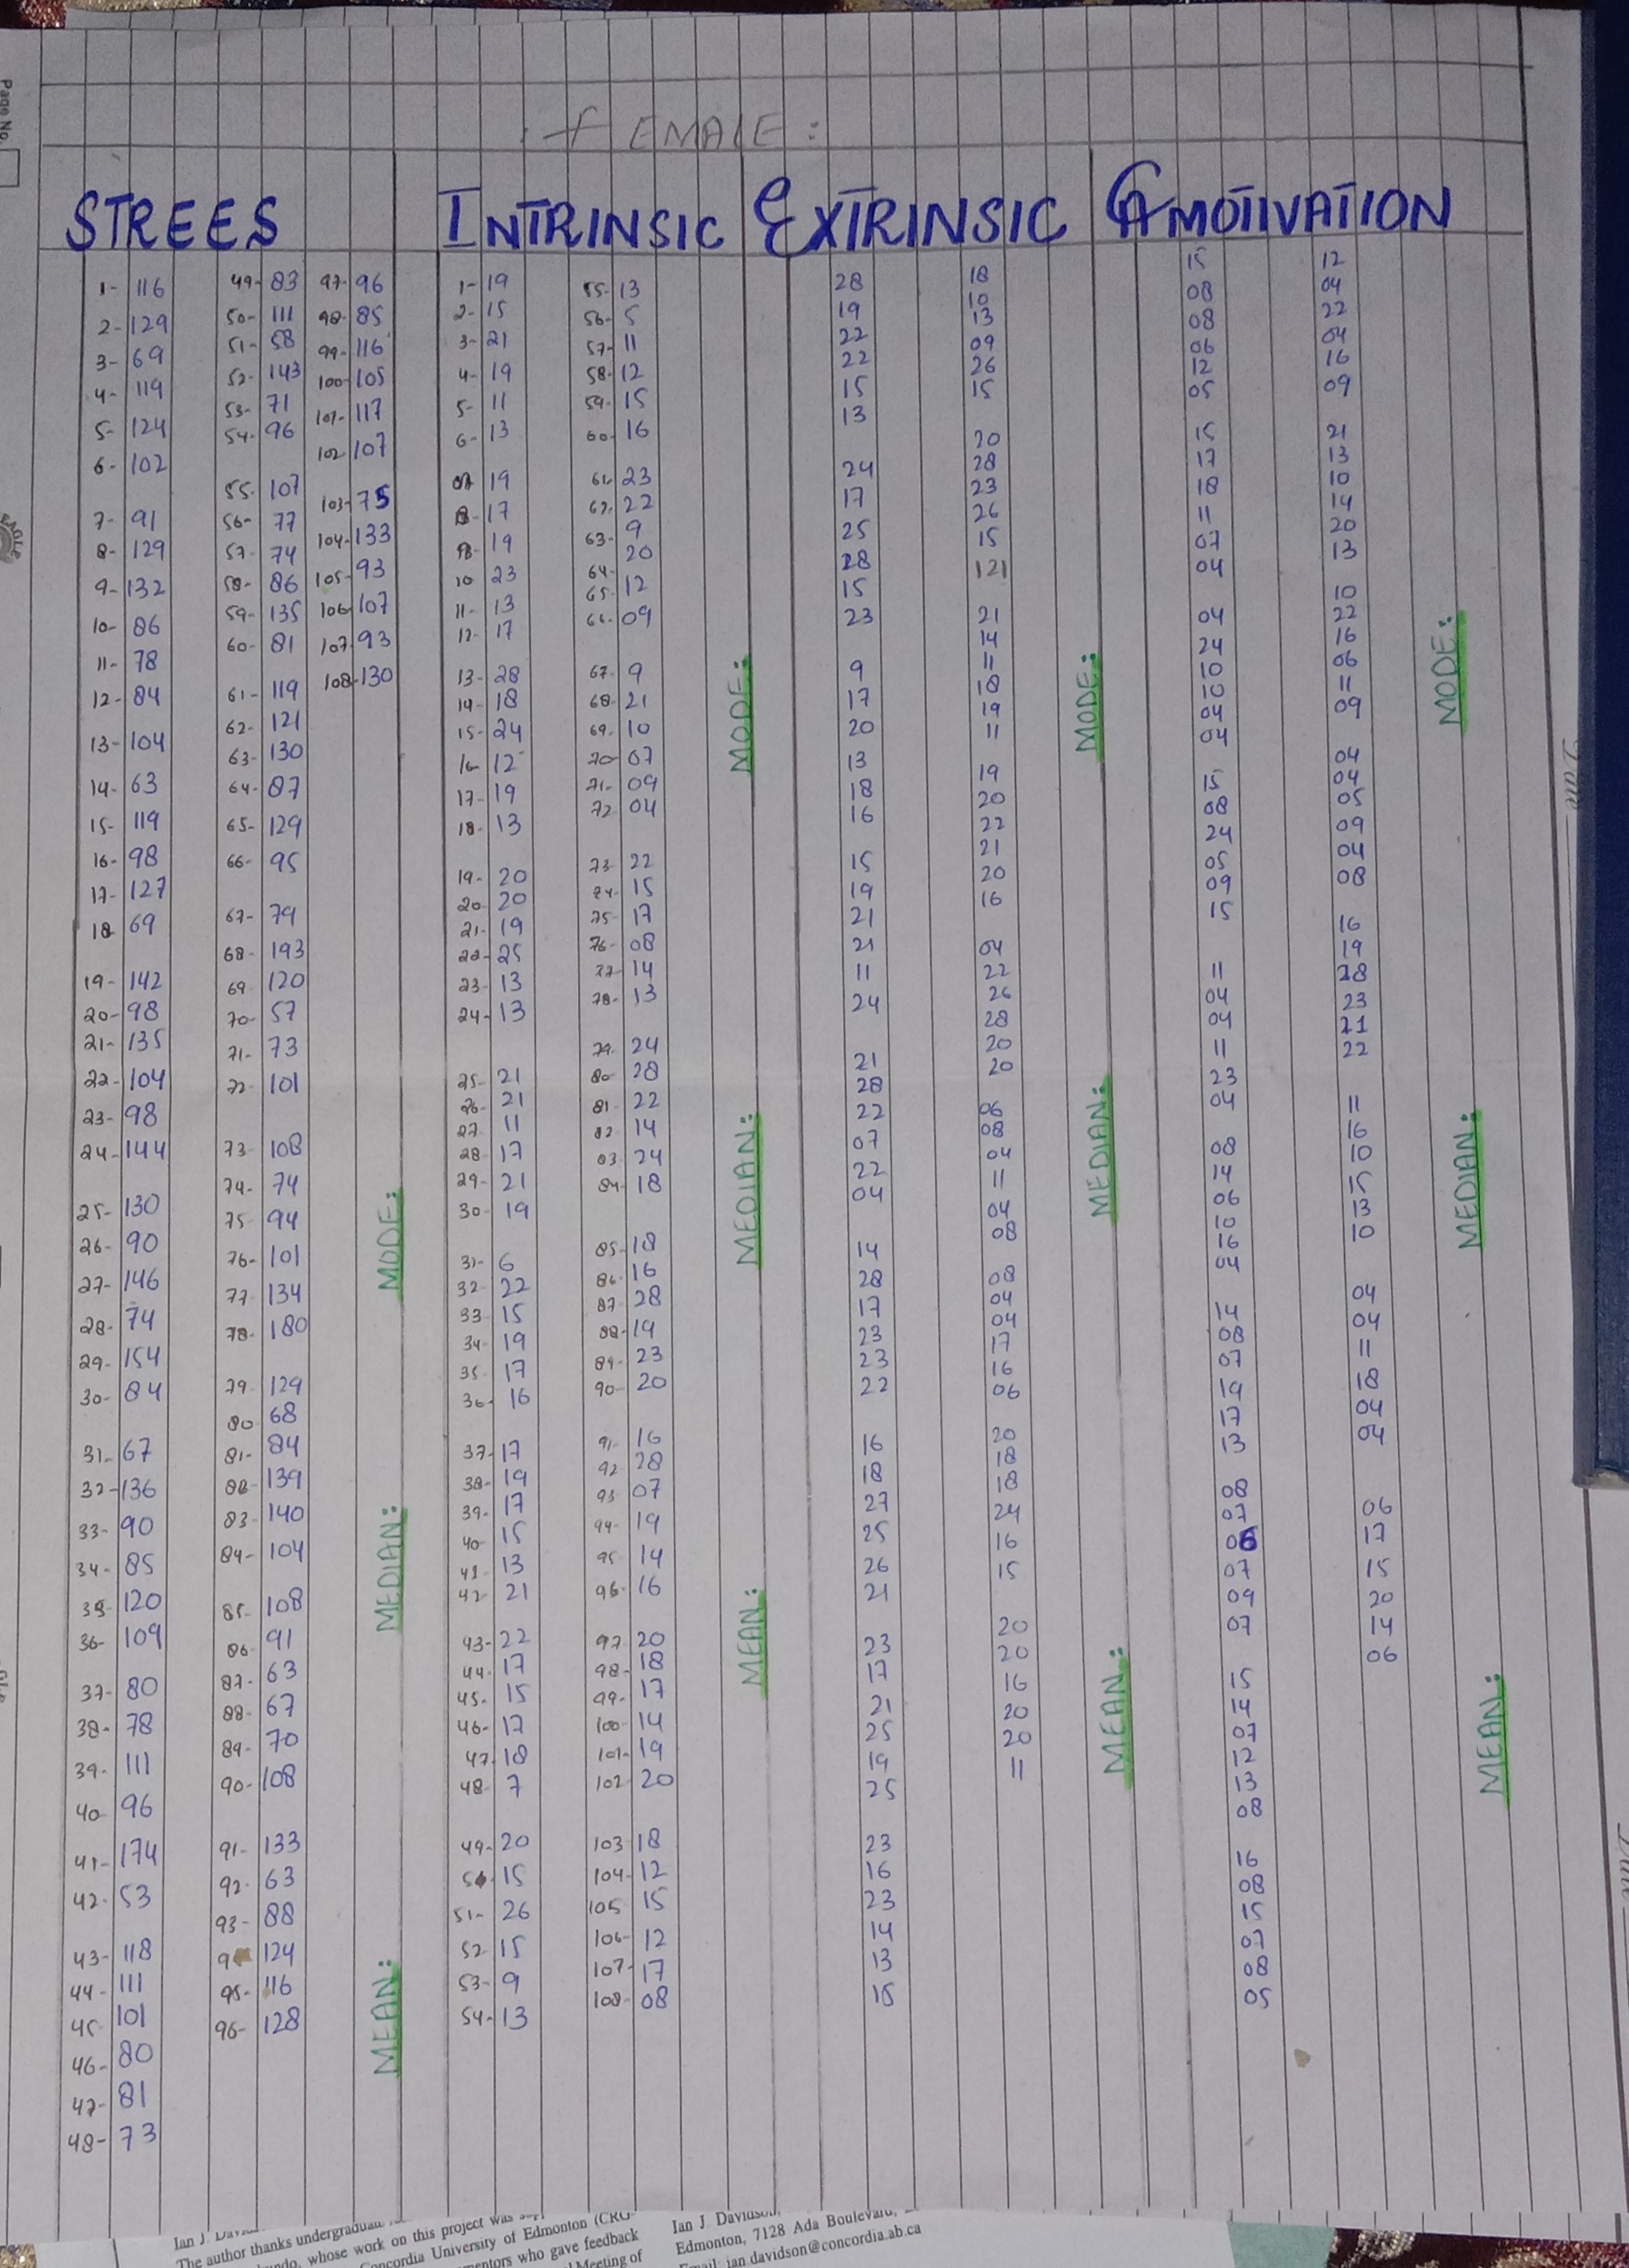 Page No.
FEMALE:
STREES INTRINSIC EXTRINSIC AMOTIVATION
1- 116
2- 129
3- 69
4- 119
5- 124
6- 102
7- 91
8- 129
9- 132
10- 86
11- 78
12- 84
13- 104
14- 63
15- 119
16- 98
17- 127
18 69
19- 142
20- 98
21- 135
22- 104
23- 98
24- 144
25- 130
26- 90
27- 146
28- 74
29- 154
30- 84
31- 67
32- 136
33- 90
34- 85
35- 120
36- 109
37- 80
38- 78
39- 111
40- 96
41- 174
42- 53
43- 118
44- 111
45- 101
46- 80
47- 81
48- 73
49- 83
50- 111
51- 58
52- 143
53- 71
54- 96
55- 107
56- 77
57- 74
58- 86
59- 135
60- 81
61- 119
62- 121
63- 130
64- 87
65- 129
66- 95
67- 79
68- 193
69 120
70- 57
71- 73
72- 101
73- 108
74- 74
75- 94
76- 101
77- 134
78- 180
79- 129
80 68
81- 84
82- 139
83- 140
84- 104
85- 108
86- 91
87- 63
88- 67
89- 70
90- 108
91- 133
92- 63
93- 88
124
95- 116
96- 128
97- 96
98- 85
99- 116
100- 105
101- 117
102- 107
103- 75
104- 133
105- 93
106- 107
107- 93
108- 130
MODE:
MEDIAN:
MEAN:
1- 19
2- 15
3- 21
4- 19
5- 11
6- 13
07 19
8- 17
19
10 23
11- 13
12- 17
13- 28
14- 18
15- 24
16 12
17- 19
18- 13
19- 20
20- 20
21- 19
22- 25
23- 13
24- 13
25- 21
26- 21
27 11
28- 17
29- 21
30- 19
31- 6
32- 22
33- 15
34- 19
35- 17
36- 16
37- 17
38- 19
39- 17
40- 15
41- 13
42- 21
43- 22
44- 17
45- 15
46- 17
47- 18
48- 7
49- 20
50- 15
51- 26
52- 15
53- 9
54- 13
55- 13
56- 5
57- 11
58- 12
59- 15
60- 16
61- 23
62- 22
63- 9
64- 20
65- 12
66- 09
67- 9
68- 21
69- 10
70- 07
71- 09
72 04
73- 22
74- 15
75- 17
76- 08
77- 14
78- 13
79- 24
80- 28
81- 22
82- 14
83- 24
84- 18
85- 18
86- 16
87- 28
88- 19
89- 23
90- 20
91- 16
92 28
93 07
94- 19
95- 14
96- 16
97- 20
98- 18
99- 17
100- 14
101- 19
102- 20
103 18
104- 12
105 15
106- 12
107- 17
108- 08
MODE:
MEDIAN:
MEAN:
28
19
22
22
15
13
24
17
25
28
15
23
9
17
20
13
18
16
15
19
21
21
11
24
21
28
22
07
22
04
14
28
17
23
23
22
16
18
27
25
26
21
23
17
21
25
19
25
23
16
23
14
13
18
10
13
09
26
15
20
28
23
26
15
121
21
14
11
18
19
11
19
20
22
21
20
16
04
22
26
28
20
20
06
08
04
11
04
08
08
04
04
17
16
06
20
18
18
24
16
15
20
20
16
20
20
11
MODE:
MEDIAN:
MEAN:
15
08
08
06
12
05
15
17
18
11
07
04
04
24
10
10
04
04
15
08
24
05
09
15
11
04
04
11
23
04
08
14
06
10
16
04
14
08
07
19
17
13
08
07
06
07
09
07
15
14
07
12
13
08
16
08
15
07
08
05
12
04
22
04
16
09
21
13
10
14
20
13
10
22
16
06
11
09
04
04
05
09
04
08
16
19
28
23
21
22
11
16
10
15
13
10
04
04
11
18
04
04
06
17
15
20
14
06
MODE:
MEDIAN:
MEAN:
EAGLE
Date
Date
Ian J.
The author thanks undergraduate
whose work on this project was
Concordia University of Edmonton (CRG-
mentors who gave feedback
Meeting of
Ian J. Davidson,
Edmonton, 7128 Ada Boulevard,
Email: ian.davidson@concordia.ab.ca